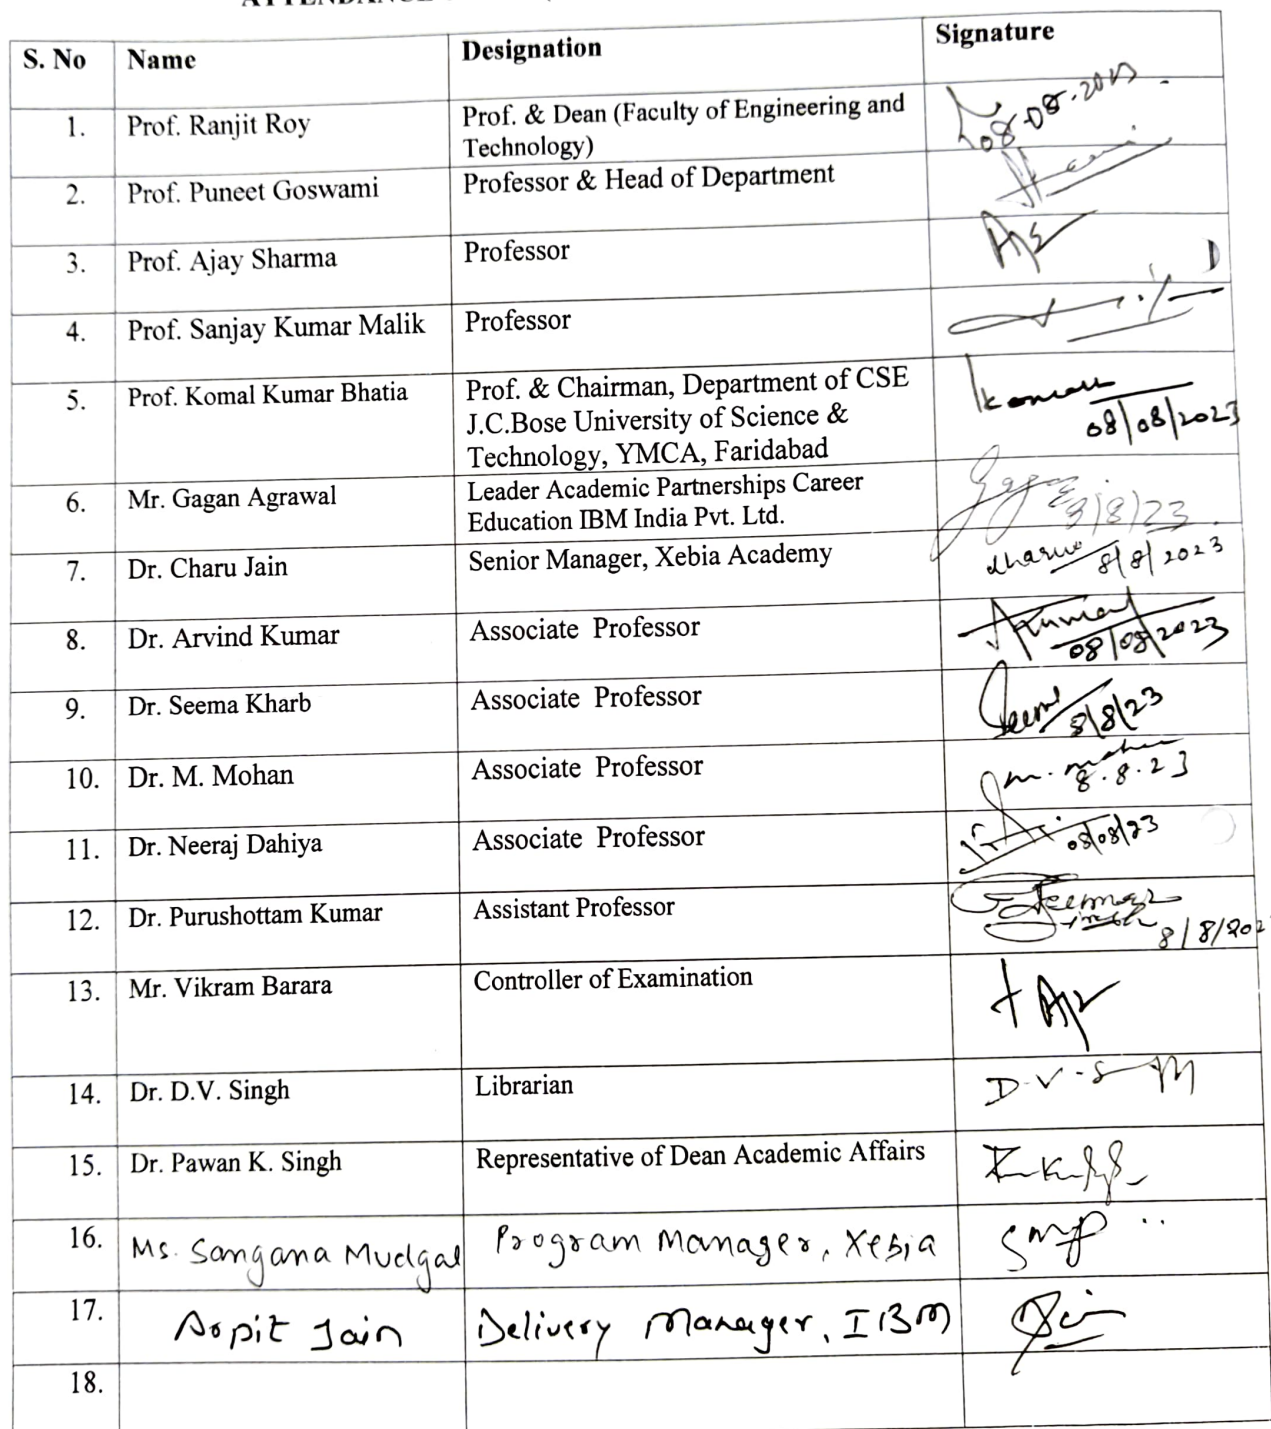 S. No Name Designation Signature
1. Prof. Ranjit Roy Prof. & Dean (Faculty of Engineering and
Technology) 08.08.2023
2. Prof. Puneet Goswami Professor & Head of Department
3. Prof. Ajay Sharma Professor
4. Prof. Sanjay Kumar Malik Professor
5. Prof. Komal Kumar Bhatia Prof. & Chairman, Department of CSE
J.C.Bose University of Science &
Technology, YMCA, Faridabad
08/08/2023
6. Mr. Gagan Agrawal Leader Academic Partnerships Career
Education IBM India Pvt. Ltd. 8/8/23
7. Dr. Charu Jain Senior Manager, Xebia Academy 8/8/2023
8. Dr. Arvind Kumar Associate Professor AKumar
08/08/2023
9. Dr. Seema Kharb Associate Professor Seema
8/8/23
10. Dr. M. Mohan Associate Professor m. mohan
8.8.23
11. Dr. Neeraj Dahiya Associate Professor 08/08/23
12. Dr. Purushottam Kumar Assistant Professor
8/8/202
13. Mr. Vikram Barara Controller of Examination
14. Dr. D.V. Singh Librarian D.V.S
15. Dr. Pawan K. Singh Representative of Dean Academic Affairs
16. Ms. Sangana Mudgal Program Manager, Xebia
17. Arpit Jain Delivery Manager, IBM
18.